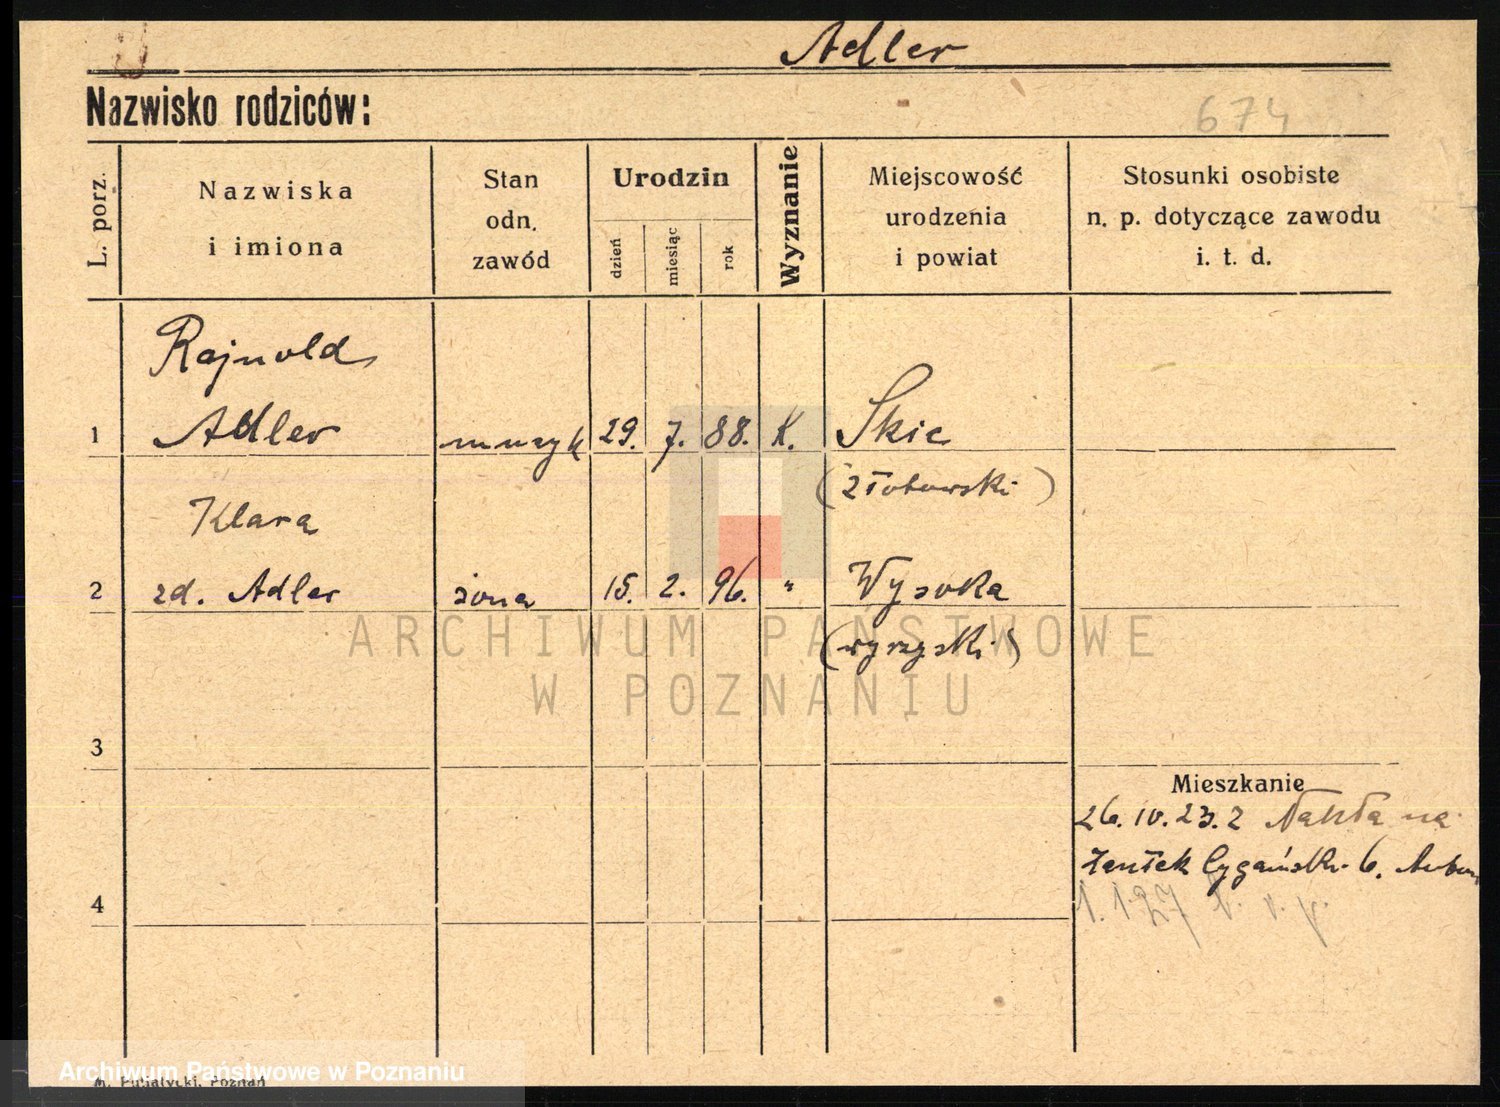 Adler
Nazwisko rodziców:
674
L. porz.
Nazwiska
i imiona
Stan
odn.
zawód
Urodzin
dzień
miesiąc
rok
Wyznanie
Miejscowość
urodzenia
i powiat
Stosunki osobiste
n. p. dotyczące zawodu
i. t. d.
Rajnold
1 Adler muzyk 29. 7. 88. K. Skic
(złotowski)
Klara
2 zd. Adler żona 15. 2. 96. " Wysoka
(wyrzyski)
ARCHIWUM PAŃSTWOWE
W POZNANIU
3
Mieszkanie
26. IV. 23. z Nakła na
6.
4
Archiwum Państwowe w Poznaniu
Poznań